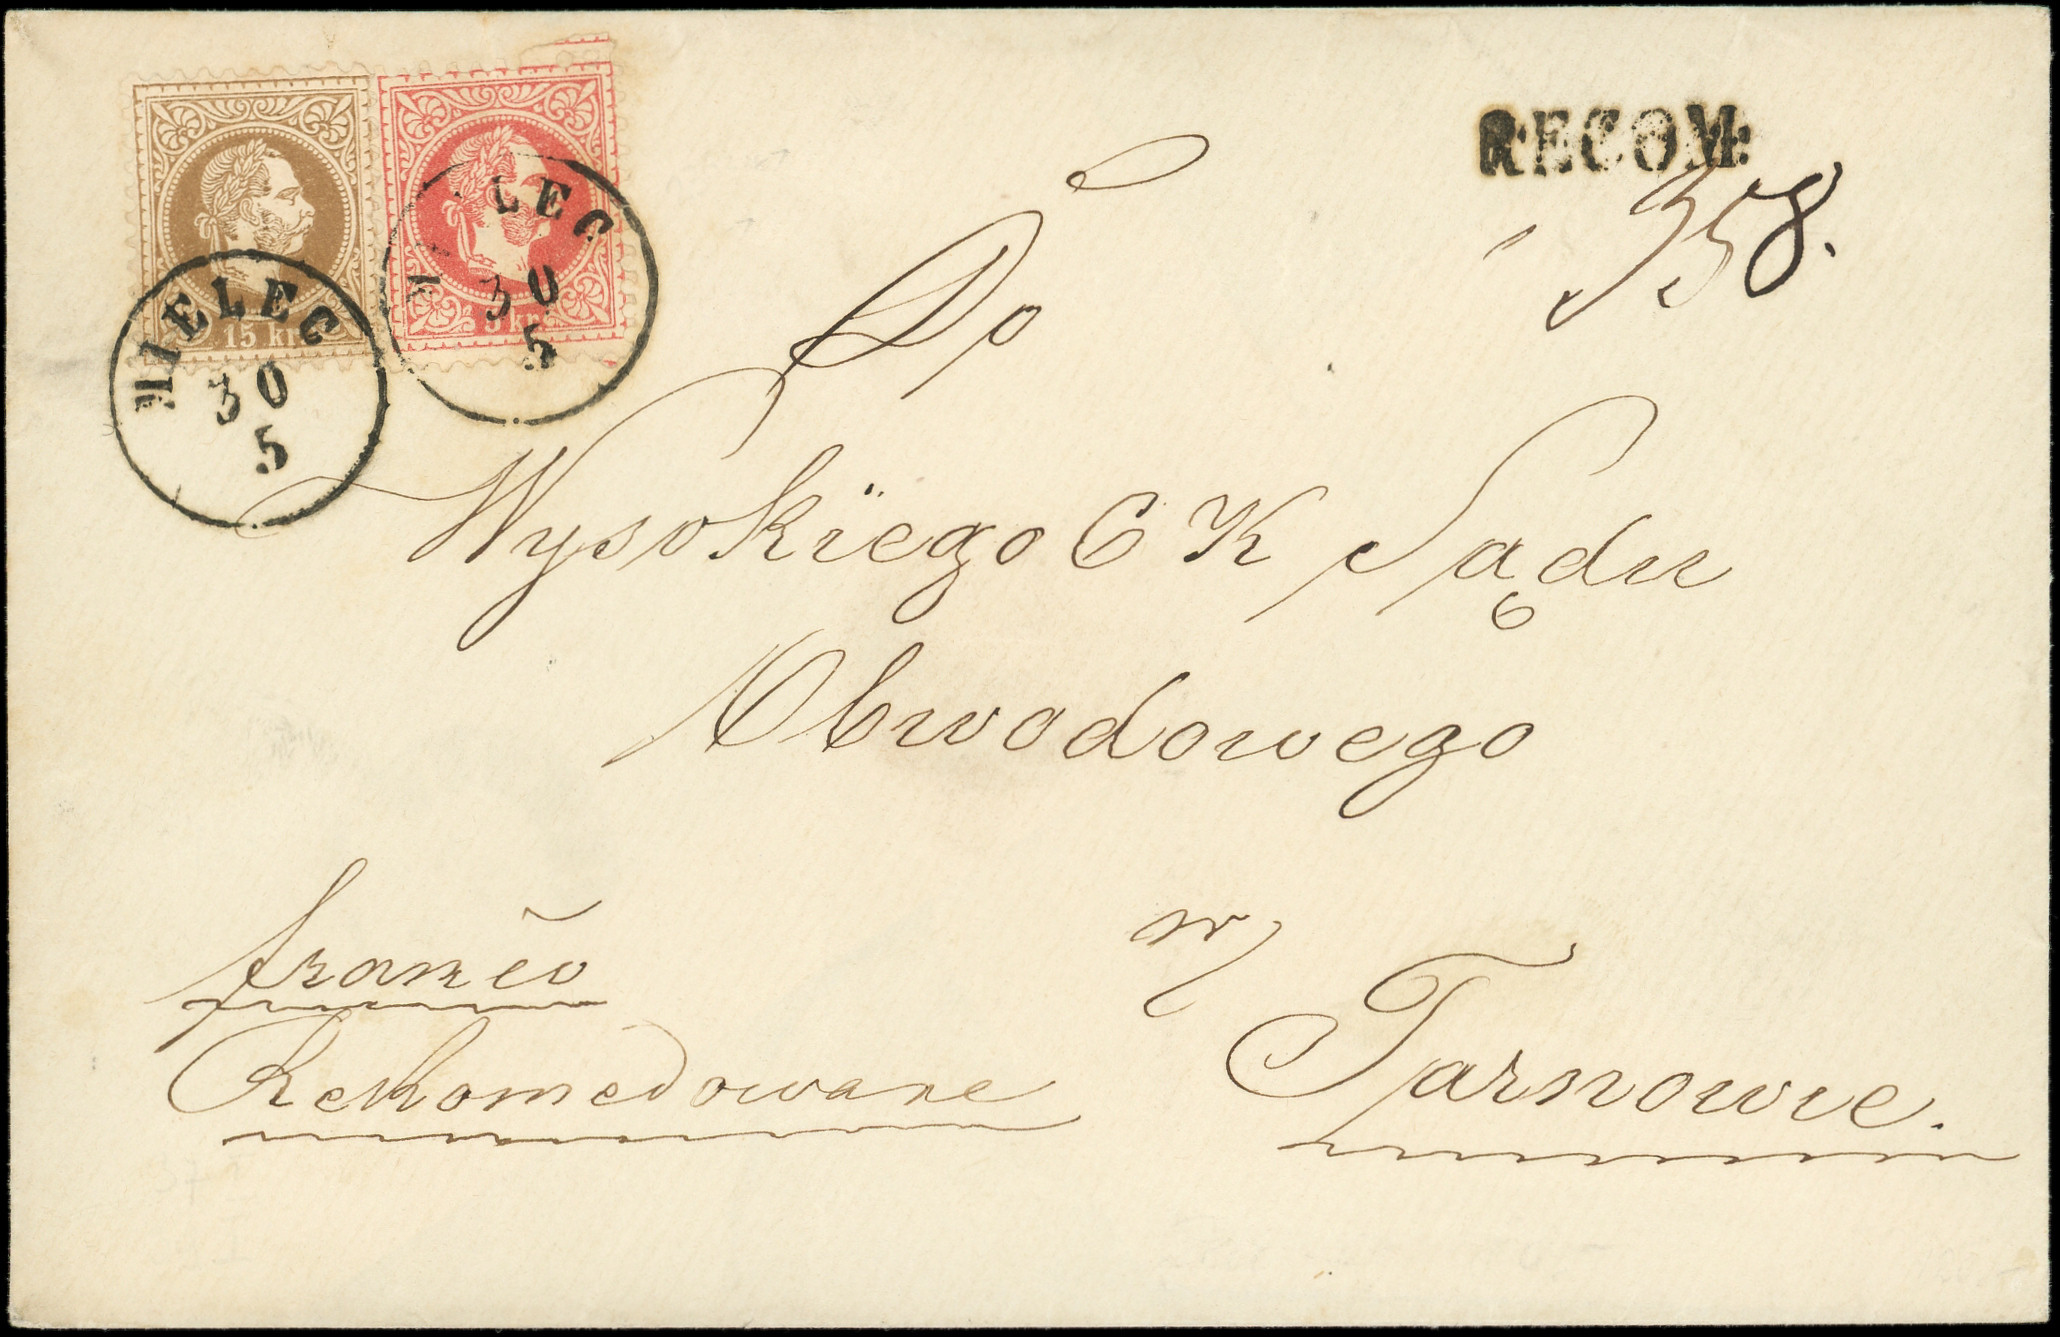 15 kr
5 kr
MIELEC
30
5
MIELEC
30
5
RECOM:
358.
Do
Wysokiego C K Sądu
Obwodowego
franco
Rekomedowane
w/
Tarnowie.